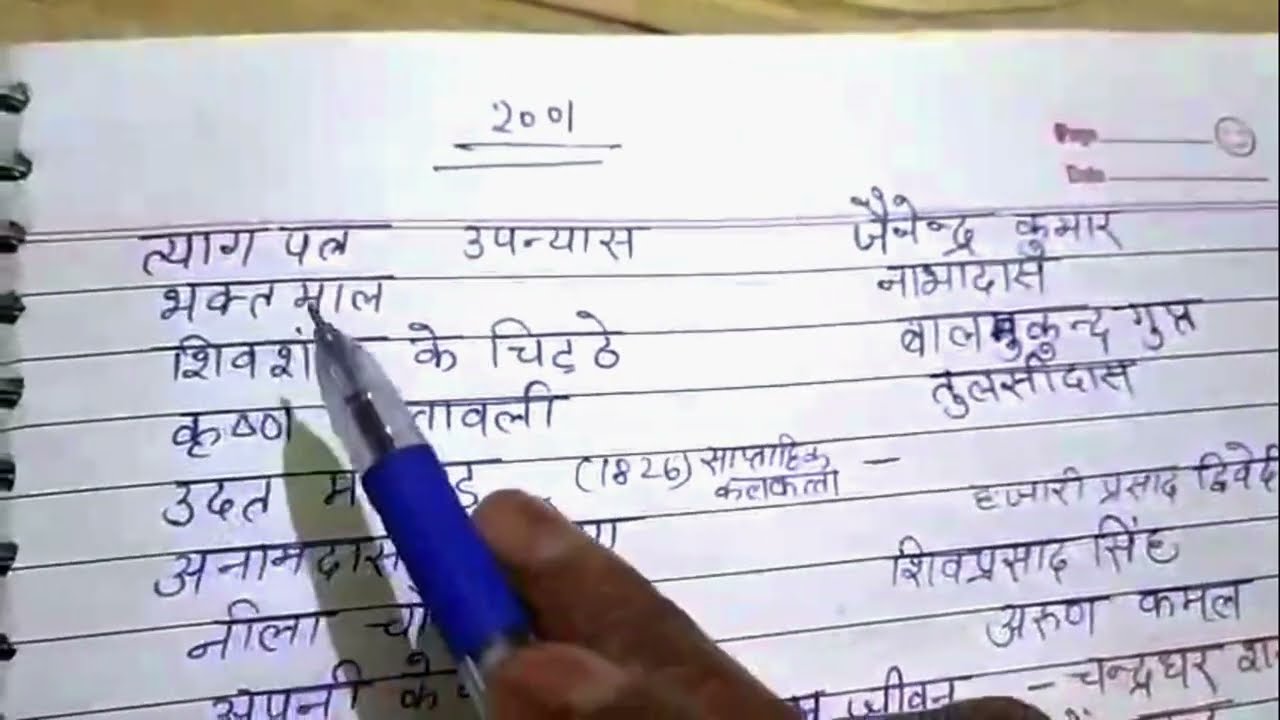 २००१
Page
Date
त्याग पत्र उपन्यास जैनेन्द्र कुमार
भक्त माल नाभादास
शिवशं के चिट्ठे बालमुकुन्द गुप्त
कृष्ण तावली तुलसीदास
उदत म ड (1826) साप्ताहिक कलकत्ता –
अनामदास हजारी प्रसाद द्विवेदी
नीला चाँ शिवप्रसाद सिंह
अपनी के अरुण कमल
जीवन – चन्द्रधर